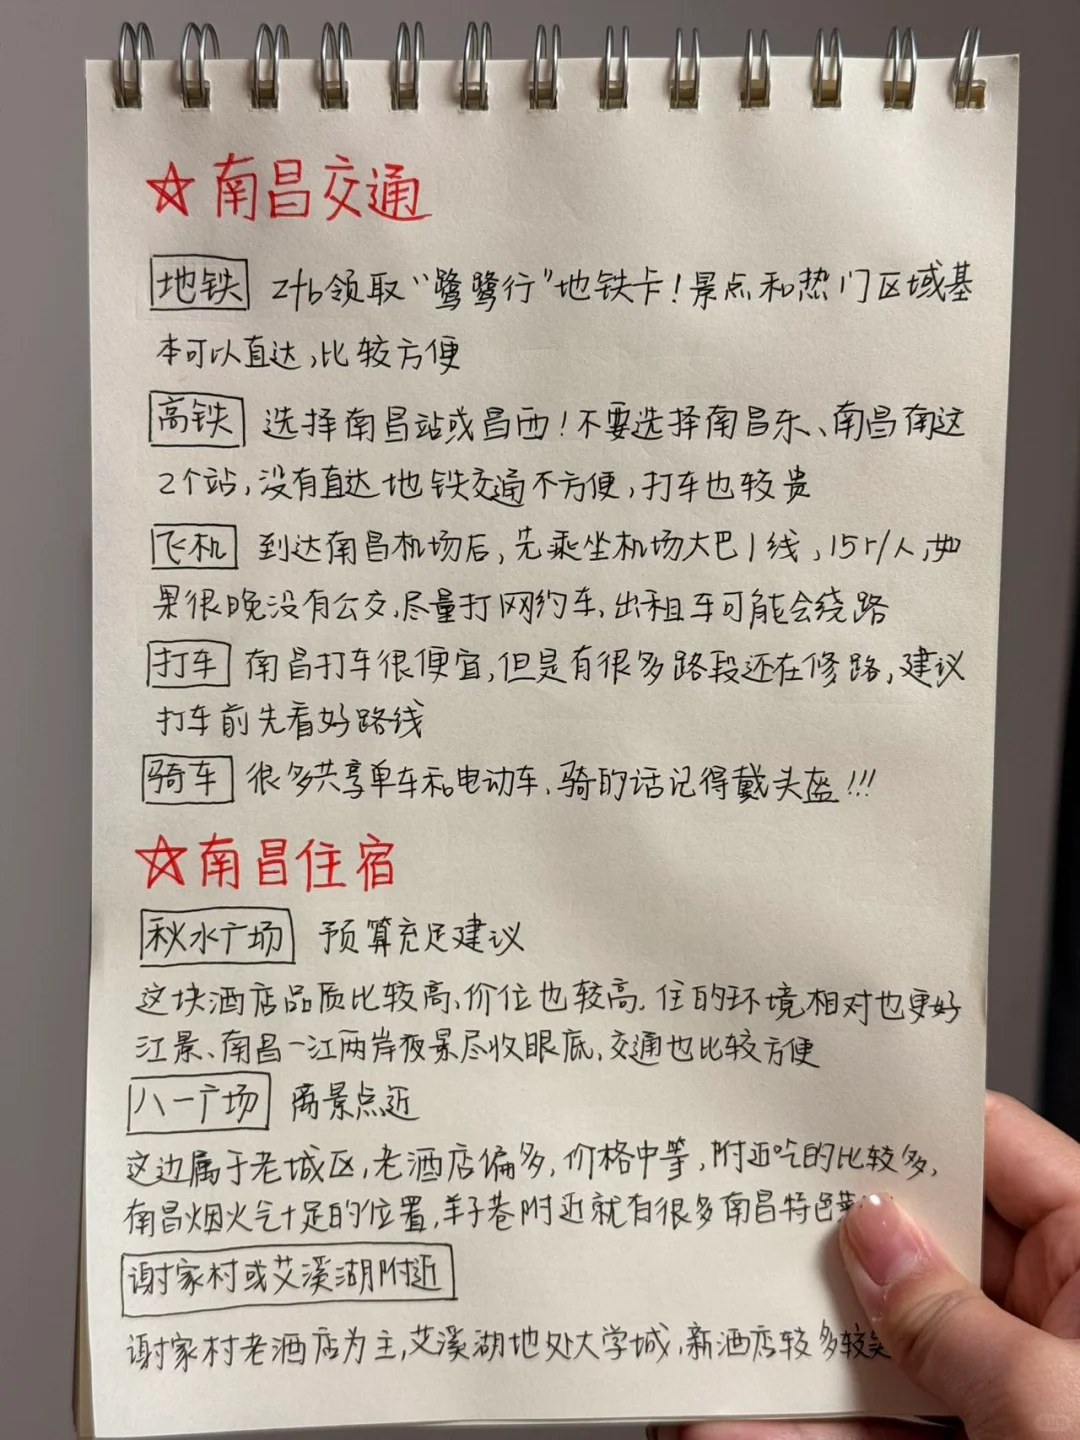 ☆南昌交通
地铁 zfb领取“鹭鹭行”地铁卡！景点和热门区域基
本可以直达,比较方便
高铁 选择南昌站或昌西！不要选择南昌东、南昌南这
2个站,没有直达地铁交通不方便,打车也较贵
飞机 到达南昌机场后,先乘坐机场大巴1线,15r/人,如
果很晚没有公交,尽量打网约车,出租车可能会绕路
打车 南昌打车很便宜,但是有很多路段还在修路,建议
打车前先看好路线
骑车 很多共享单车和电动车、骑的话记得戴头盔!!!
☆南昌住宿
秋水广场 预算充足建议
这块酒店品质比较高、价位也较高.住的环境相对也更好
江景、南昌一江两岸夜景尽收眼底,交通也比较方便
八一广场 离景点近
这边属于老城区,老酒店偏多,价格中等,附近吃的比较多,
南昌烟火气十足的位置,羊子巷附近就有很多南昌特色
谢家村或艾溪湖附近
谢家村老酒店为主,艾溪湖地处大学城,新酒店较多较